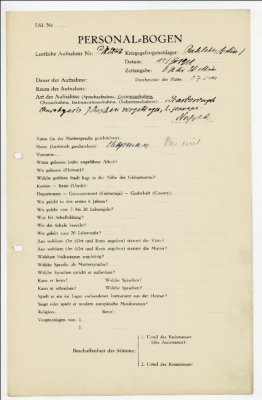 Lfd. Nr.
PERSONAL-BOGEN
Lautliche Aufnahme Nr.: Kriegsgefangenenlager:
Datum:
Zeitangabe:
Dauer der Aufnahme: Durchmesser der Platte: 27 cm
Raum der Aufnahme:
Art der Aufnahme (Sprechaufnahme, Gesangsaufnahme,
Choraufnahme, Instrumentenaufnahme, Orchesteraufnahme):
Name (in der Muttersprache geschrieben):
Name (lateinisch geschrieben): Chapman
Vorname:
Wann geboren (oder ungefähres Alter)?
Wo geboren (Heimat)?
Welche größere Stadt liegt in der Nähe des Geburtsortes?
Kanton – Kreis (Ujedz):
Department – Gouvernement (Gubernija) – Grafschaft (County):
Wo gelebt in den ersten 6 Jahren?
Wo gelebt vom 7. bis 20. Lebensjahr?
Was für Schulbildung?
Wo die Schule besucht?
Wo gelebt vom 20. Lebensjahr?
Aus welchem Ort (Ort und Kreis angeben) stammt der Vater?
Aus welchem Ort (Ort und Kreis angeben) stammt die Mutter?
Welchem Volksstamm angehörig?
Welche Sprache als Muttersprache?
Welche Sprachen spricht er außerdem?
Kann er lesen? Welche Sprachen?
Kann er schreiben? Welche Sprachen?
Spielt er ein im Lager vorhandenes Instrument aus der Heimat?
Singt oder spielt er modern europäische Musikweisen?
Religion: Beruf:
Vorgeschlagen von: 1.
2.
Beschaffenheit der Stimme:
1. Urteil des Fachmannes
(des Assistenten):
2. Urteil des Kommissars: